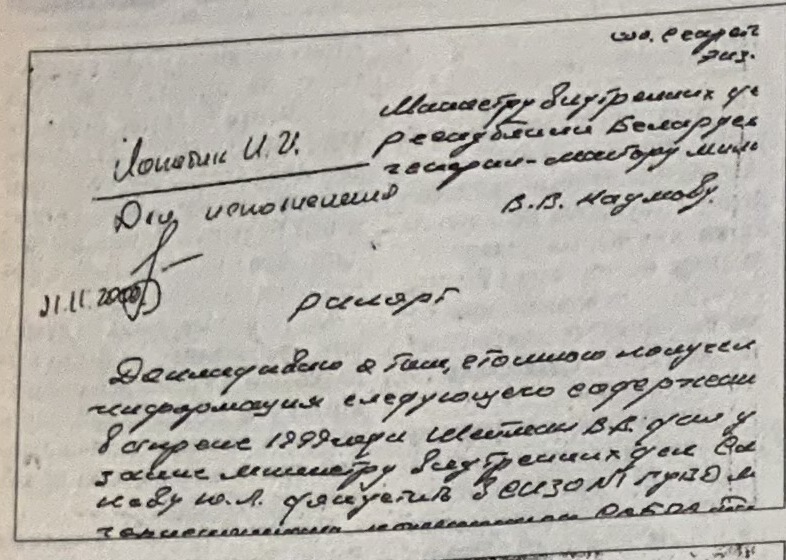 экз.
Министру внутренних де
республики Беларусь
генерал-майору мили
В.В. Наумову.
Лопатик И.И.
Для исполнения
21.11.2000
рапорт
Докладываю о том, что мною получен
информация следующего содержани
в апреле 1999 года Шейман В.В. дал у
зание министру внутренних дел Си
кову Ю.Л. допустить в СИЗО №1 ГУВД м